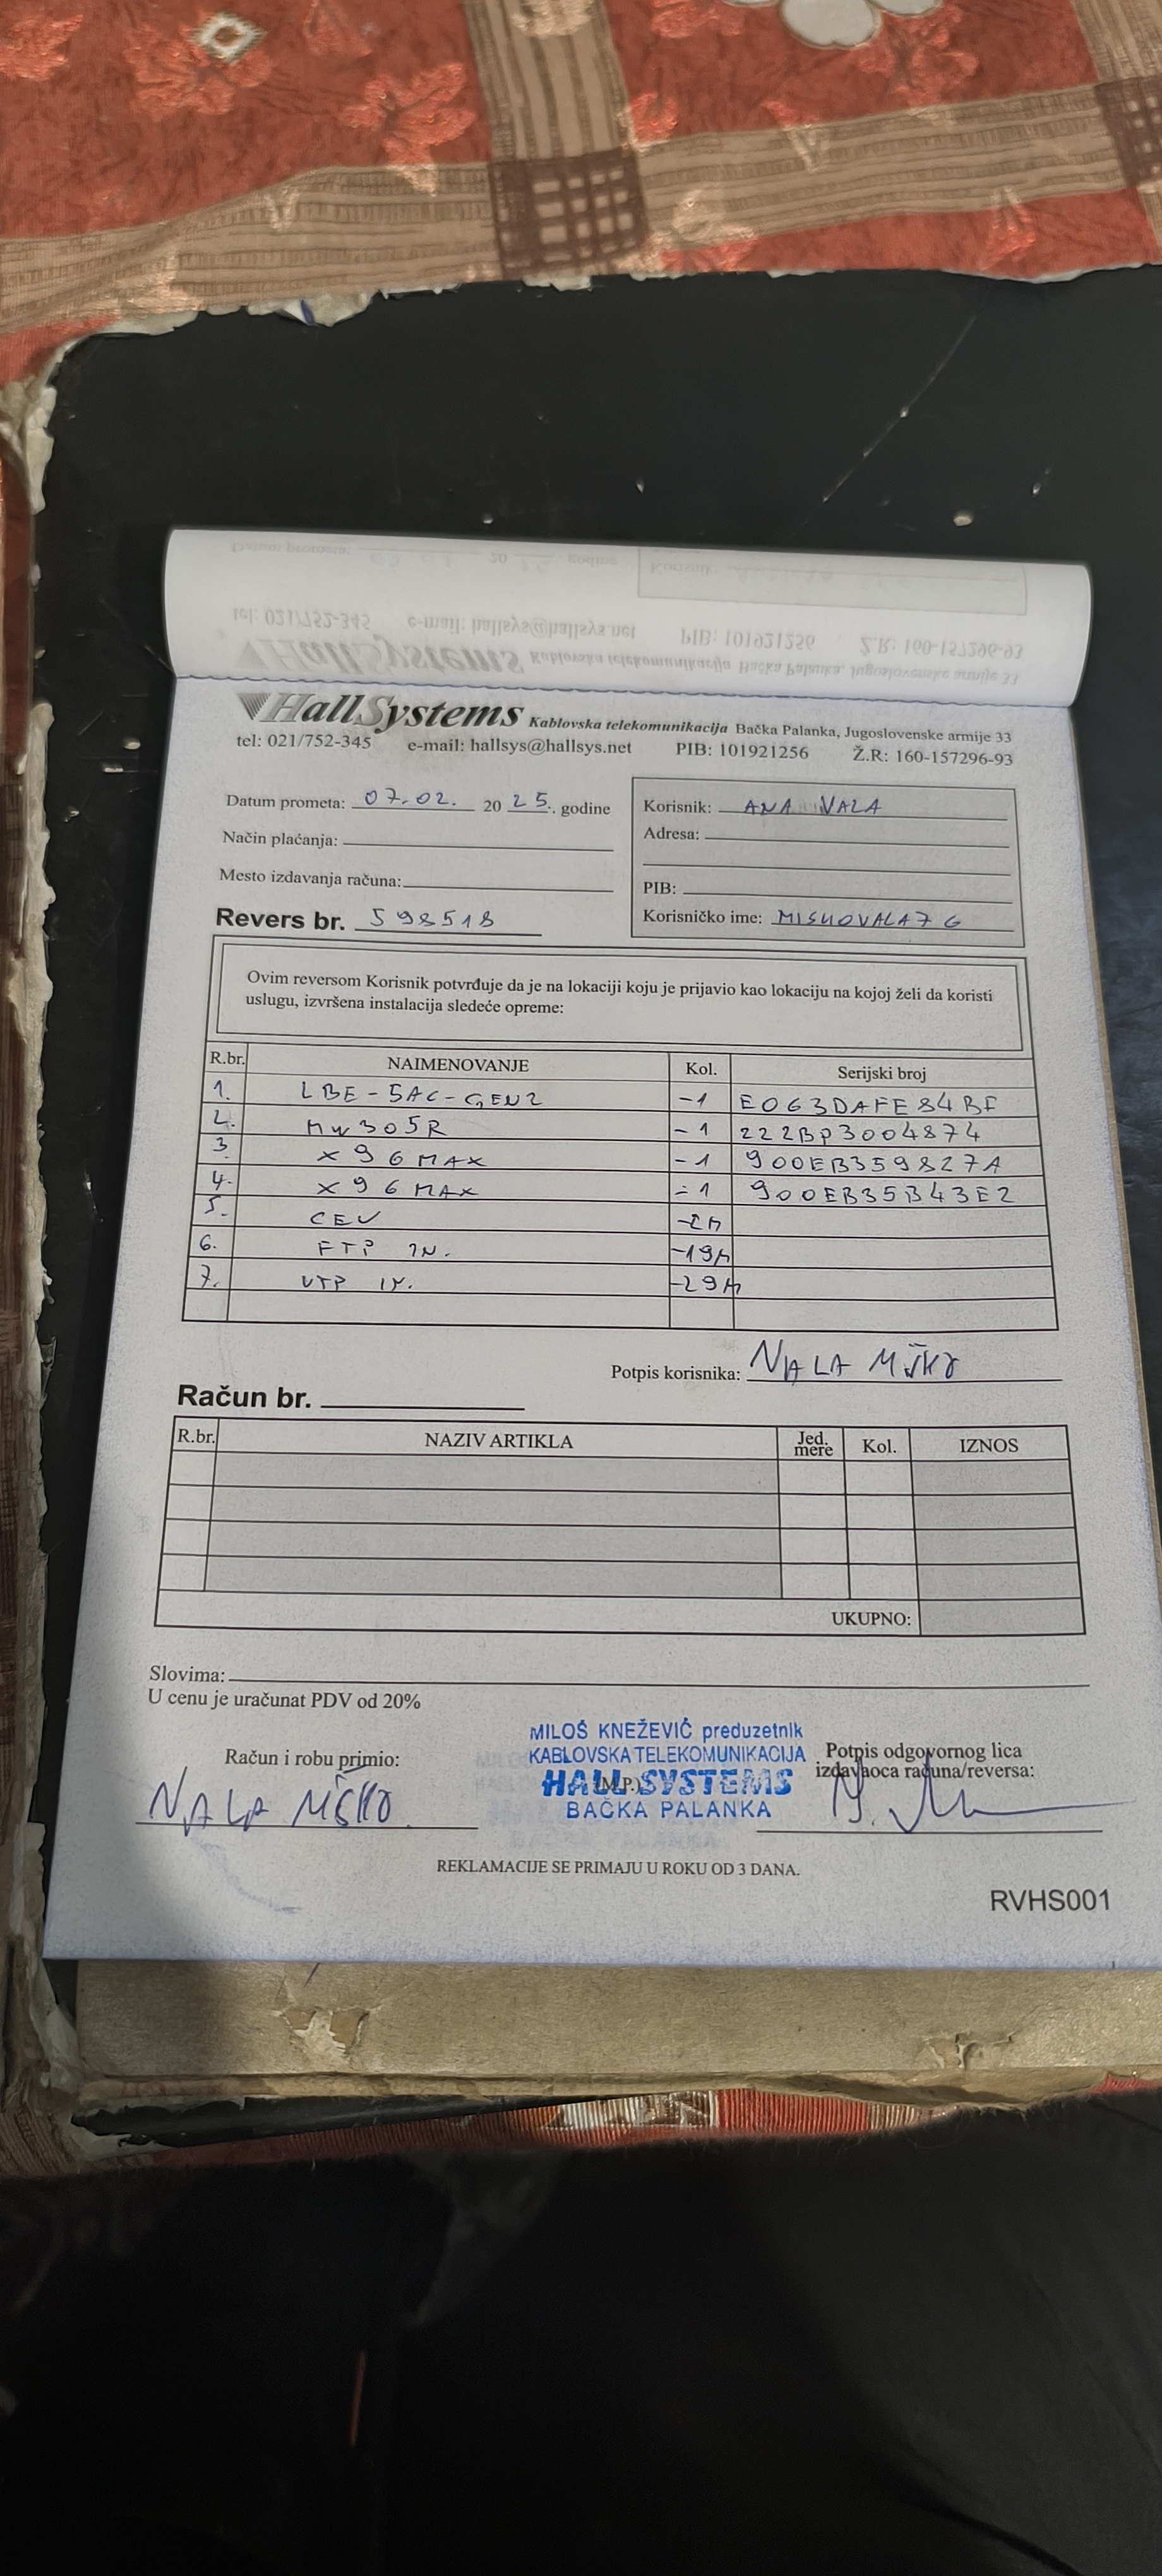 HallSystems Kablovska telekomunikacija Bačka Palanka, Jugoslovenske armije 33
tel: 021/752-345 e-mail: hallsys@hallsys.net PIB: 101921256 Ž.R: 160-157296-93
Datum prometa: 07.02. 20 25. godine
Način plaćanja:
Mesto izdavanja računa:
Revers br. 598518
Korisnik: ANA VALA
Adresa:
PIB:
Korisničko ime: MISKOVALA76
Ovim reversom Korisnik potvrđuje da je na lokaciji koju je prijavio kao lokaciju na kojoj želi da koristi
uslugu, izvršena instalacija sledeće opreme:
R.br. NAIMENOVANJE Kol. Serijski broj
1. LBE-5AC-GEN2 -1 E063DAFE84BF
2. MW305R -1 222BP3004874
3. X96MAX -1 900EB359827A
4. X96MAX -1 900EB35B43E2
5. CEV -2M
6. FTP IN. -19M
7. UTP IN. -29M
Potpis korisnika: VALA MIŠKO
Račun br.
R.br. NAZIV ARTIKLA Jed. mere Kol. IZNOS
UKUPNO:
Slovima:
U cenu je uračunat PDV od 20%
Račun i robu primio:
VALA MIŠKO
MILOŠ KNEŽEVIĆ preduzetnik
KABLOVSKA TELEKOMUNIKACIJA
HALL SYSTEMS
(M.P.)
BAČKA PALANKA
Potpis odgovornog lica
izdavaoca računa/reversa:
REKLAMACIJE SE PRIMAJU U ROKU OD 3 DANA.
RVHS001